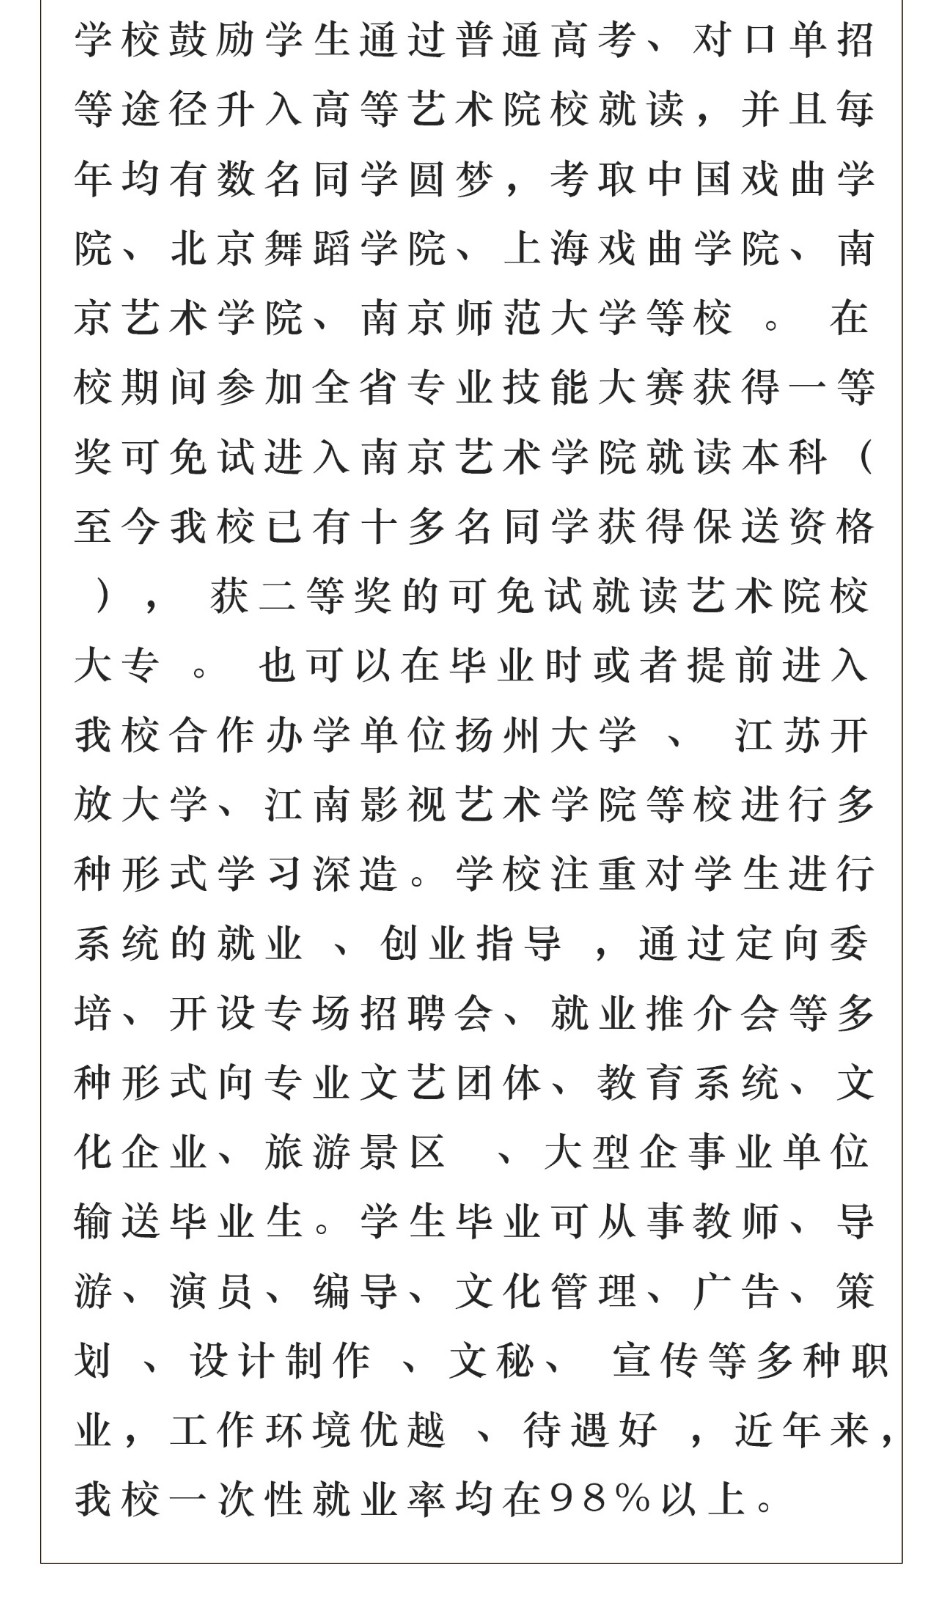 学校鼓励学生通过普通高考、对口单招
等途径升入高等艺术院校就读，并且每
年均有数名同学圆梦，考取中国戏曲学
院、北京舞蹈学院、上海戏曲学院、南
京艺术学院、南京师范大学等校 。 在
校期间参加全省专业技能大赛获得一等
奖可免试进入南京艺术学院就读本科（
至今我校已有十多名同学获得保送资格
）， 获二等奖的可免试就读艺术院校
大专 。 也可以在毕业时或者提前进入
我校合作办学单位扬州大学 、 江苏开
放大学、江南影视艺术学院等校进行多
种形式学习深造。学校注重对学生进行
系统的就业 、创业指导 ，通过定向委
培、开设专场招聘会、就业推介会等多
种形式向专业文艺团体、教育系统、文
化企业、旅游景区 、大型企事业单位
输送毕业生。学生毕业可从事教师、导
游、演员、编导、文化管理、广告、策
划 、设计制作 、文秘、 宣传等多种职
业，工作环境优越 、待遇好 ，近年来，
我校一次性就业率均在98%以上。